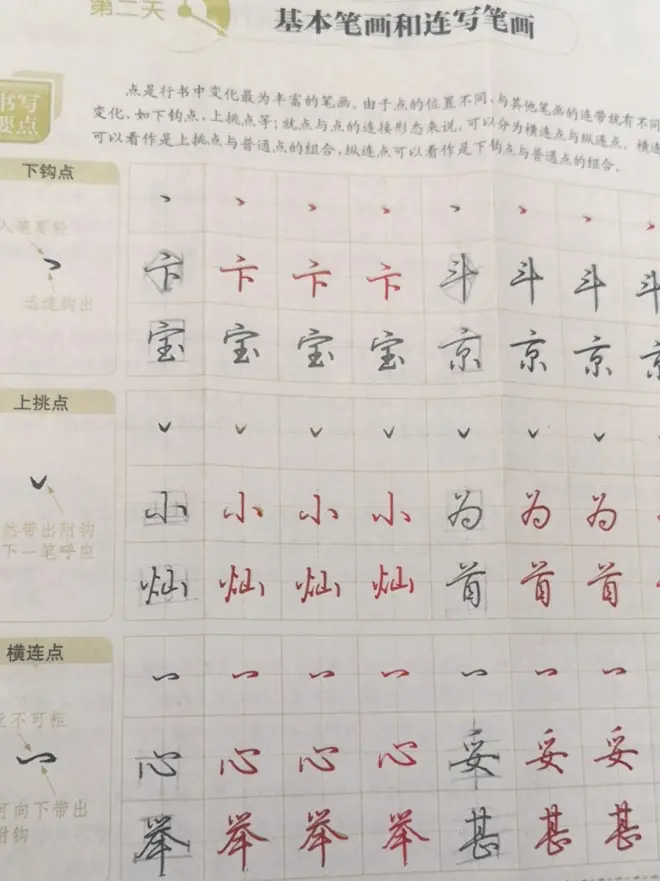 第二天
基本笔画和连写笔画
书写
要点
点是行书中变化最为丰富的笔画。由于点的位置不同、与其他笔画的连带就有不同
变化，如下钩点、上挑点等；就点与点的连接形态来说，可以分为横连点与纵连点。横连
可以看作是上挑点与普通点的组合，纵连点可以看作是下钩点与普通点的组合。
下钩点
入笔要轻
迅捷钩出
卞 卞 卞 卞 斗 斗 斗 斗
宝 宝 宝 宝 京 京 京 京
上挑点
然带出附钩
下一笔呼应
小 小 小 小 为 为 为
灿 灿 灿 灿 首 首 首
横连点
不可粗
可向下带出
附钩
心 心 心 心 妥 妥 妥
举 举 举 举 甚 甚 甚